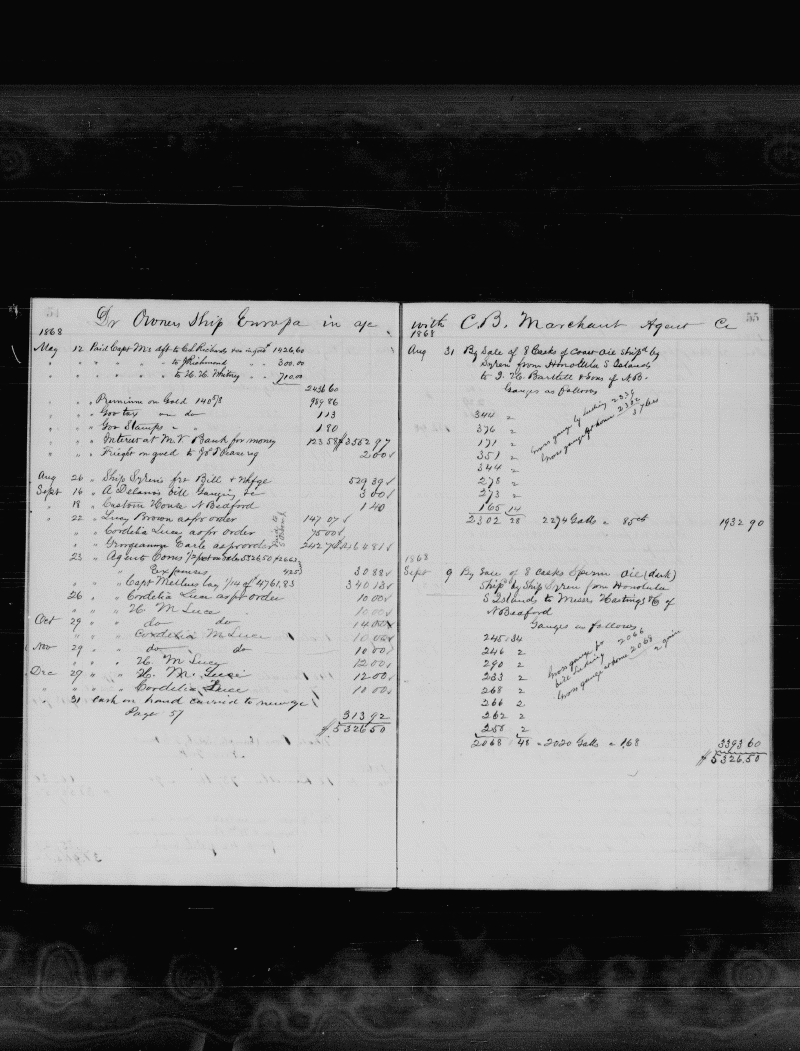 Dr Owners Ship Europa in a/c
1868
May 12 Paid Capt Mc dft to
1426.60
" " " " " to J Richmond " " 300.00
" " " " " to H. H. Whitney " " 710.00
2436 60
" " Premium on Gold 140
" " Gov tax on do 113
" " Gov Stamps " " 180
" " Interest at M.V. Bank for money 3562 97
" " Freight on 200
Aug 26 " Ship Syren's frt Bill & Whfge 529 39
Sept 16 " A Delano's bill Gauging &c 3 00
" 18 " Custom House N Bedford 1 40
" 22 " Lucy Brown as pr order 147 07
" " Cordelia Luce as pr order 75 00
" " Earle as pr order
23 " Agents Coms
" Expenses 4 25 30 88
" Capt Mellens lay 1/14 of 4761,83 340 13
26 " Cordelia Luce as pr order 10 00
" " " H M Luce 10 00
Oct 29 " do do 14 00
" " " Cordelia M Luce 10 00
Nov 29 " do do 10 00
" " " H M Lucy 12 00
Dec 29 " H. M. 12 00
" " " Cordelia Luce 10 00
31 Cash on hand carried to new a/c
Page 57 313 92
$5326 50
with C. B. Marchant Agent Cr
55
1868
Aug 31 By Sale of 8 Casks of Coast Oil ship'd by
Syren from Honolulu S Islands
to I. H. Bartlett & Sons of N.B.
Gauges as follows
344 2
376 2
171 2
351 2
344 2
278 2
273 2
165 14
2302 28 2274 Galls @ 85 cts 1932 90
Gross gauge by
Gross gauge at home 2302
1868
Sept 9 By Sale of 8 Casks Sperm Oil (dark)
Ship'd by Ship Syren from Honolulu
S Islands to Messrs Hastings & Co of
N Bedford
Gauges as follows
245 34
246 2
290 2
233 2
268 2
266 2
262 2
258 2
2068 48 = 2020 Galls @ 1,68 3393 60
Gross gauge pr
bill lading 2066
Gross gauge at home 2068
2 gain
$5326.50